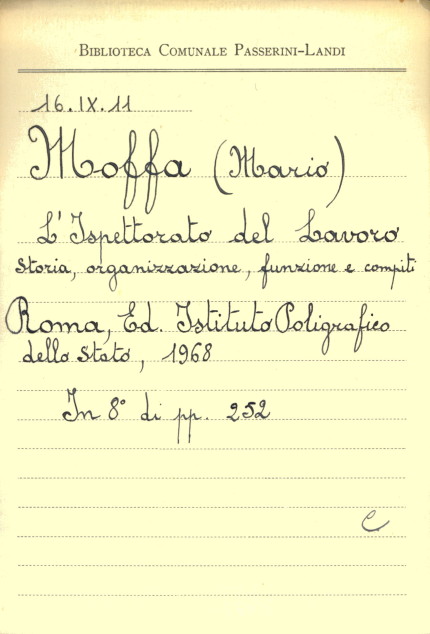 BIBLIOTECA COMUNALE PASSERINI-LANDI
16.IX.11
Moffa (Mario)
L'Ispettorato del Lavoro
storia, organizzazione, funzione e compiti
Roma, Ed. Istituto Poligrafico
dello stato, 1968
In 8° di pp. 252
C